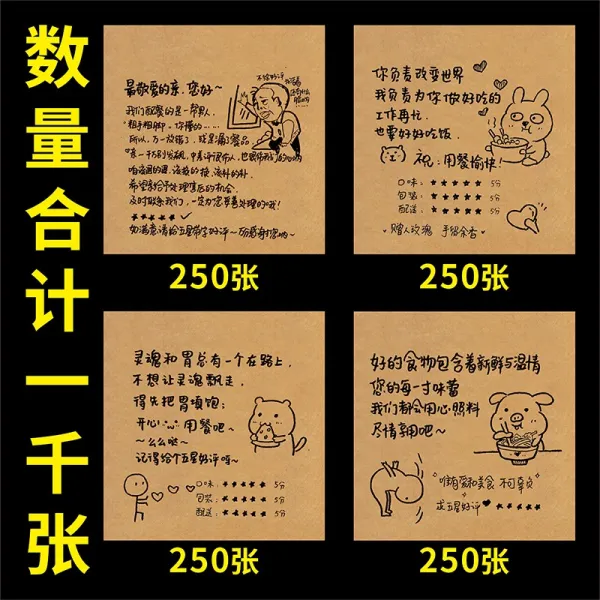 数量合计一千张
最敬爱的亲，您好~
我们配餐的是一帮男人，
粗手粗脚，你懂的……
所以，万一放错了，或是漏了餐品
希望亲给予处理售后的机会，
及时联系我们，一定为您妥善处理的哦！
★★★★★✓
如满意请给五星带字好评~万分感谢您哟~
250张
你负责改变世界
我负责为你做好吃的
工作再忙，
也要好好吃饭，
祝：用餐愉快！
口味：★★★★★ 5分
包装：★★★★★ 5分
配送：★★★★★ 5分
赠人玫瑰 手留余香
250张
灵魂和胃总有一个在路上，
不想让灵魂飘走，
得先把胃填饱；
开心用餐吧~
~么么哒~
记得给个五星好评呀~
口味：★★★★★ 5分
包装：★★★★★ 5分
配送：★★★★★ 5分
250张
好的食物包含着新鲜与温情
您的每一寸味蕾
我们都会用心照料
尽情享用吧~
唯有爱和美食 不可辜负
求五星好评 ★★★★★
250张